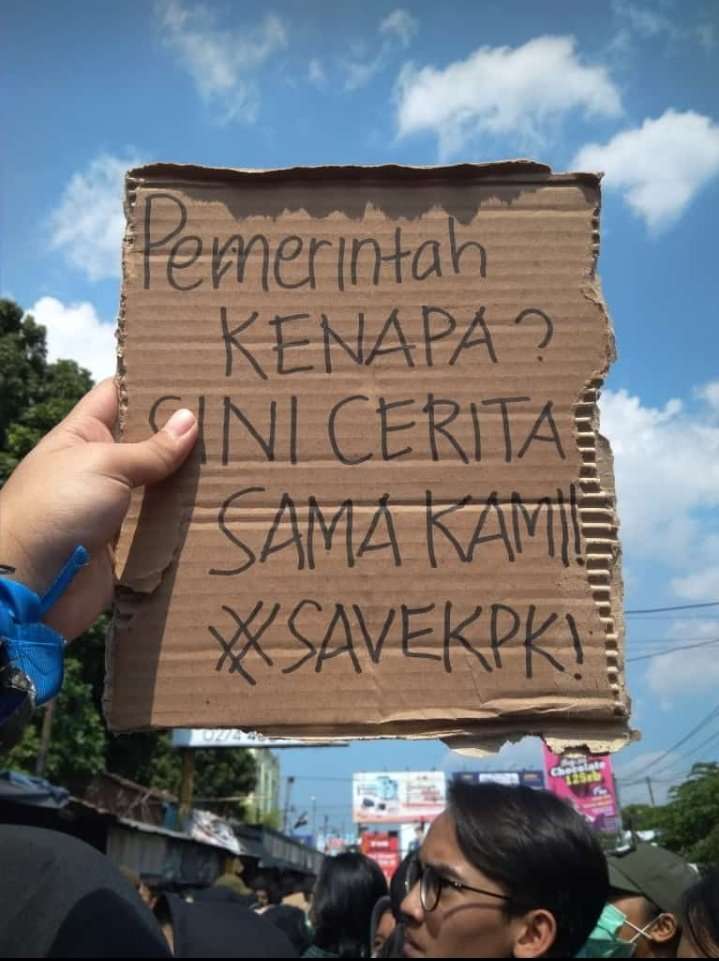 Pemerintah
KENAPA?
SINI CERITA
SAMA KAMI!
#SAVEKPK!
0274
Chocolate